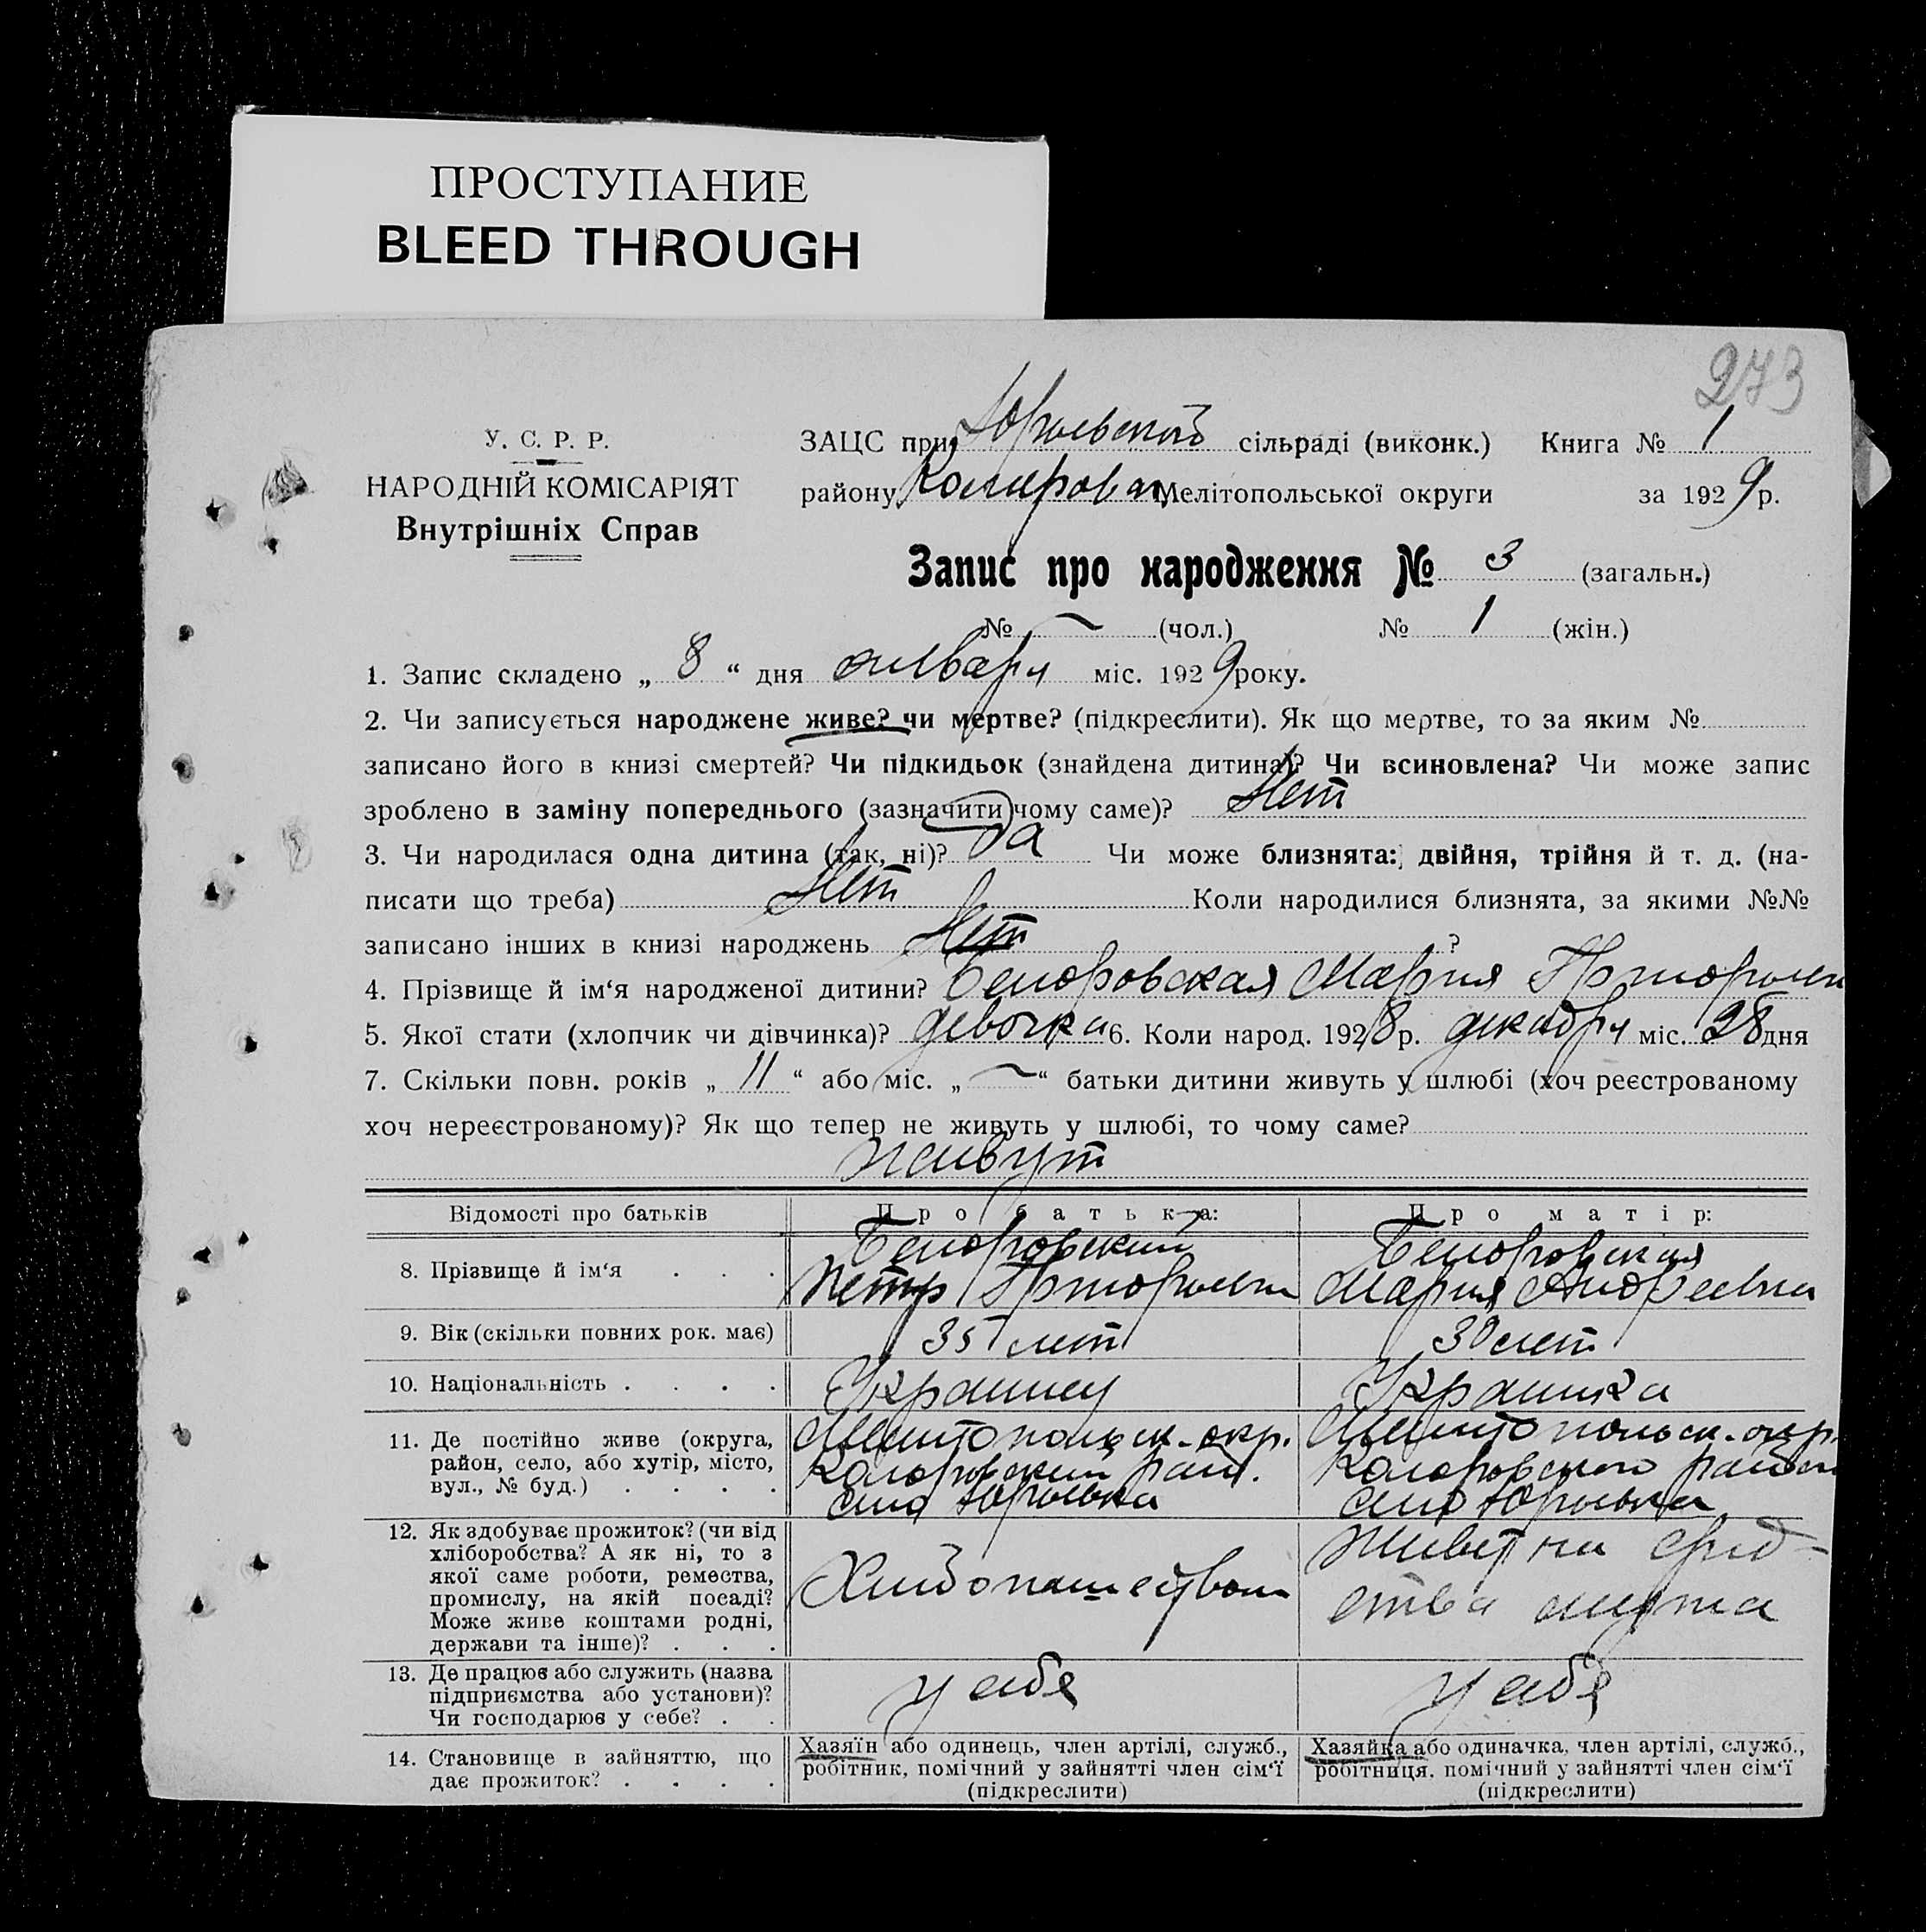 ПРОСТУПАНИЕ
BLEED THROUGH
273
У. С. Р. Р.
НАРОДНІЙ КОМІСАРІЯТ
Внутрішніх Справ
ЗАЦС при Юрьевской сільраді (виконк.) Книга № 1
району Мелітопольської округи за 1929 р.
Запис про народження № 3 (загальн.)
№ — (чол.) № 1 (жін.)
1. Запис складено „ 8 “ дня января міс. 1929 року.
2. Чи записується народжене живе? чи мертве? (підкреслити). Як що мертве, то за яким №
записано його в книзі смертей? Чи підкидьок (знайдена дитина)? Чи всиновлена? Чи може запис
зроблено в заміну попереднього (зазначити чому саме)? Нет
3. Чи народилася одна дитина (так, ні)? да Чи може близнята: двійня, трійня й т. д. (на-
писати що треба) Нет Коли народилися близнята, за якими №№
записано інших в книзі народжень Нет ?
4. Прізвище й ім‘я народженої дитини? Мария
5. Якої стати (хлопчик чи дівчинка)? девочка 6. Коли народ. 1928 р. декабря міс. 28 дня
7. Скільки повн. років „ 11 “ або міс. „ — “ батьки дитини живуть у шлюбі (хоч реєстрованому
хоч нереєстрованому)? Як що тепер не живуть у шлюбі, то чому саме?
живут
Відомості про батьків Про батька: Про матір:
8. Прізвище й ім‘я . . . Петр Мария Андреевна
9. Вік (скільки повних рок. має) 35 лет 30 лет
10. Національність . . . . Украинец Украинка
11. Де постійно живе (округа, район, село, або хутір, місто, вул., № буд.) . . . . Мелитопольск. окр. район. село Юрьевка Мелитопольск. окр. района село Юрьевка
12. Як здобуває прожиток? (чи від хліборобства? А як ні, то з якої саме роботи, ремества, промислу, на якій посаді? Може живе коштами родні, держави та інше)? . . . Хлебопашеством Живет на сред-
ства мужа
13. Де працює або служить (назва підприємства або установи)? Чи господарює у себе? . . у себя у себя
14. Становище в зайняттю, що дає прожиток? . . . . Хазяїн або одинець, член артілі, служб., робітник, помічний у зайнятті член сім‘ї (підкреслити) Хазяйка або одиначка, член артілі, служб., робітниця, помічний у зайнятті член сім‘ї (підкреслити)